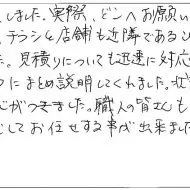 しました。実際、どこへお願い
、チラシと店舗も近隣である
た。見積りについても迅速に対応
にまとめ説明してくれました。
心がつきました。職人の皆さんも
してお任せする事が出来ました